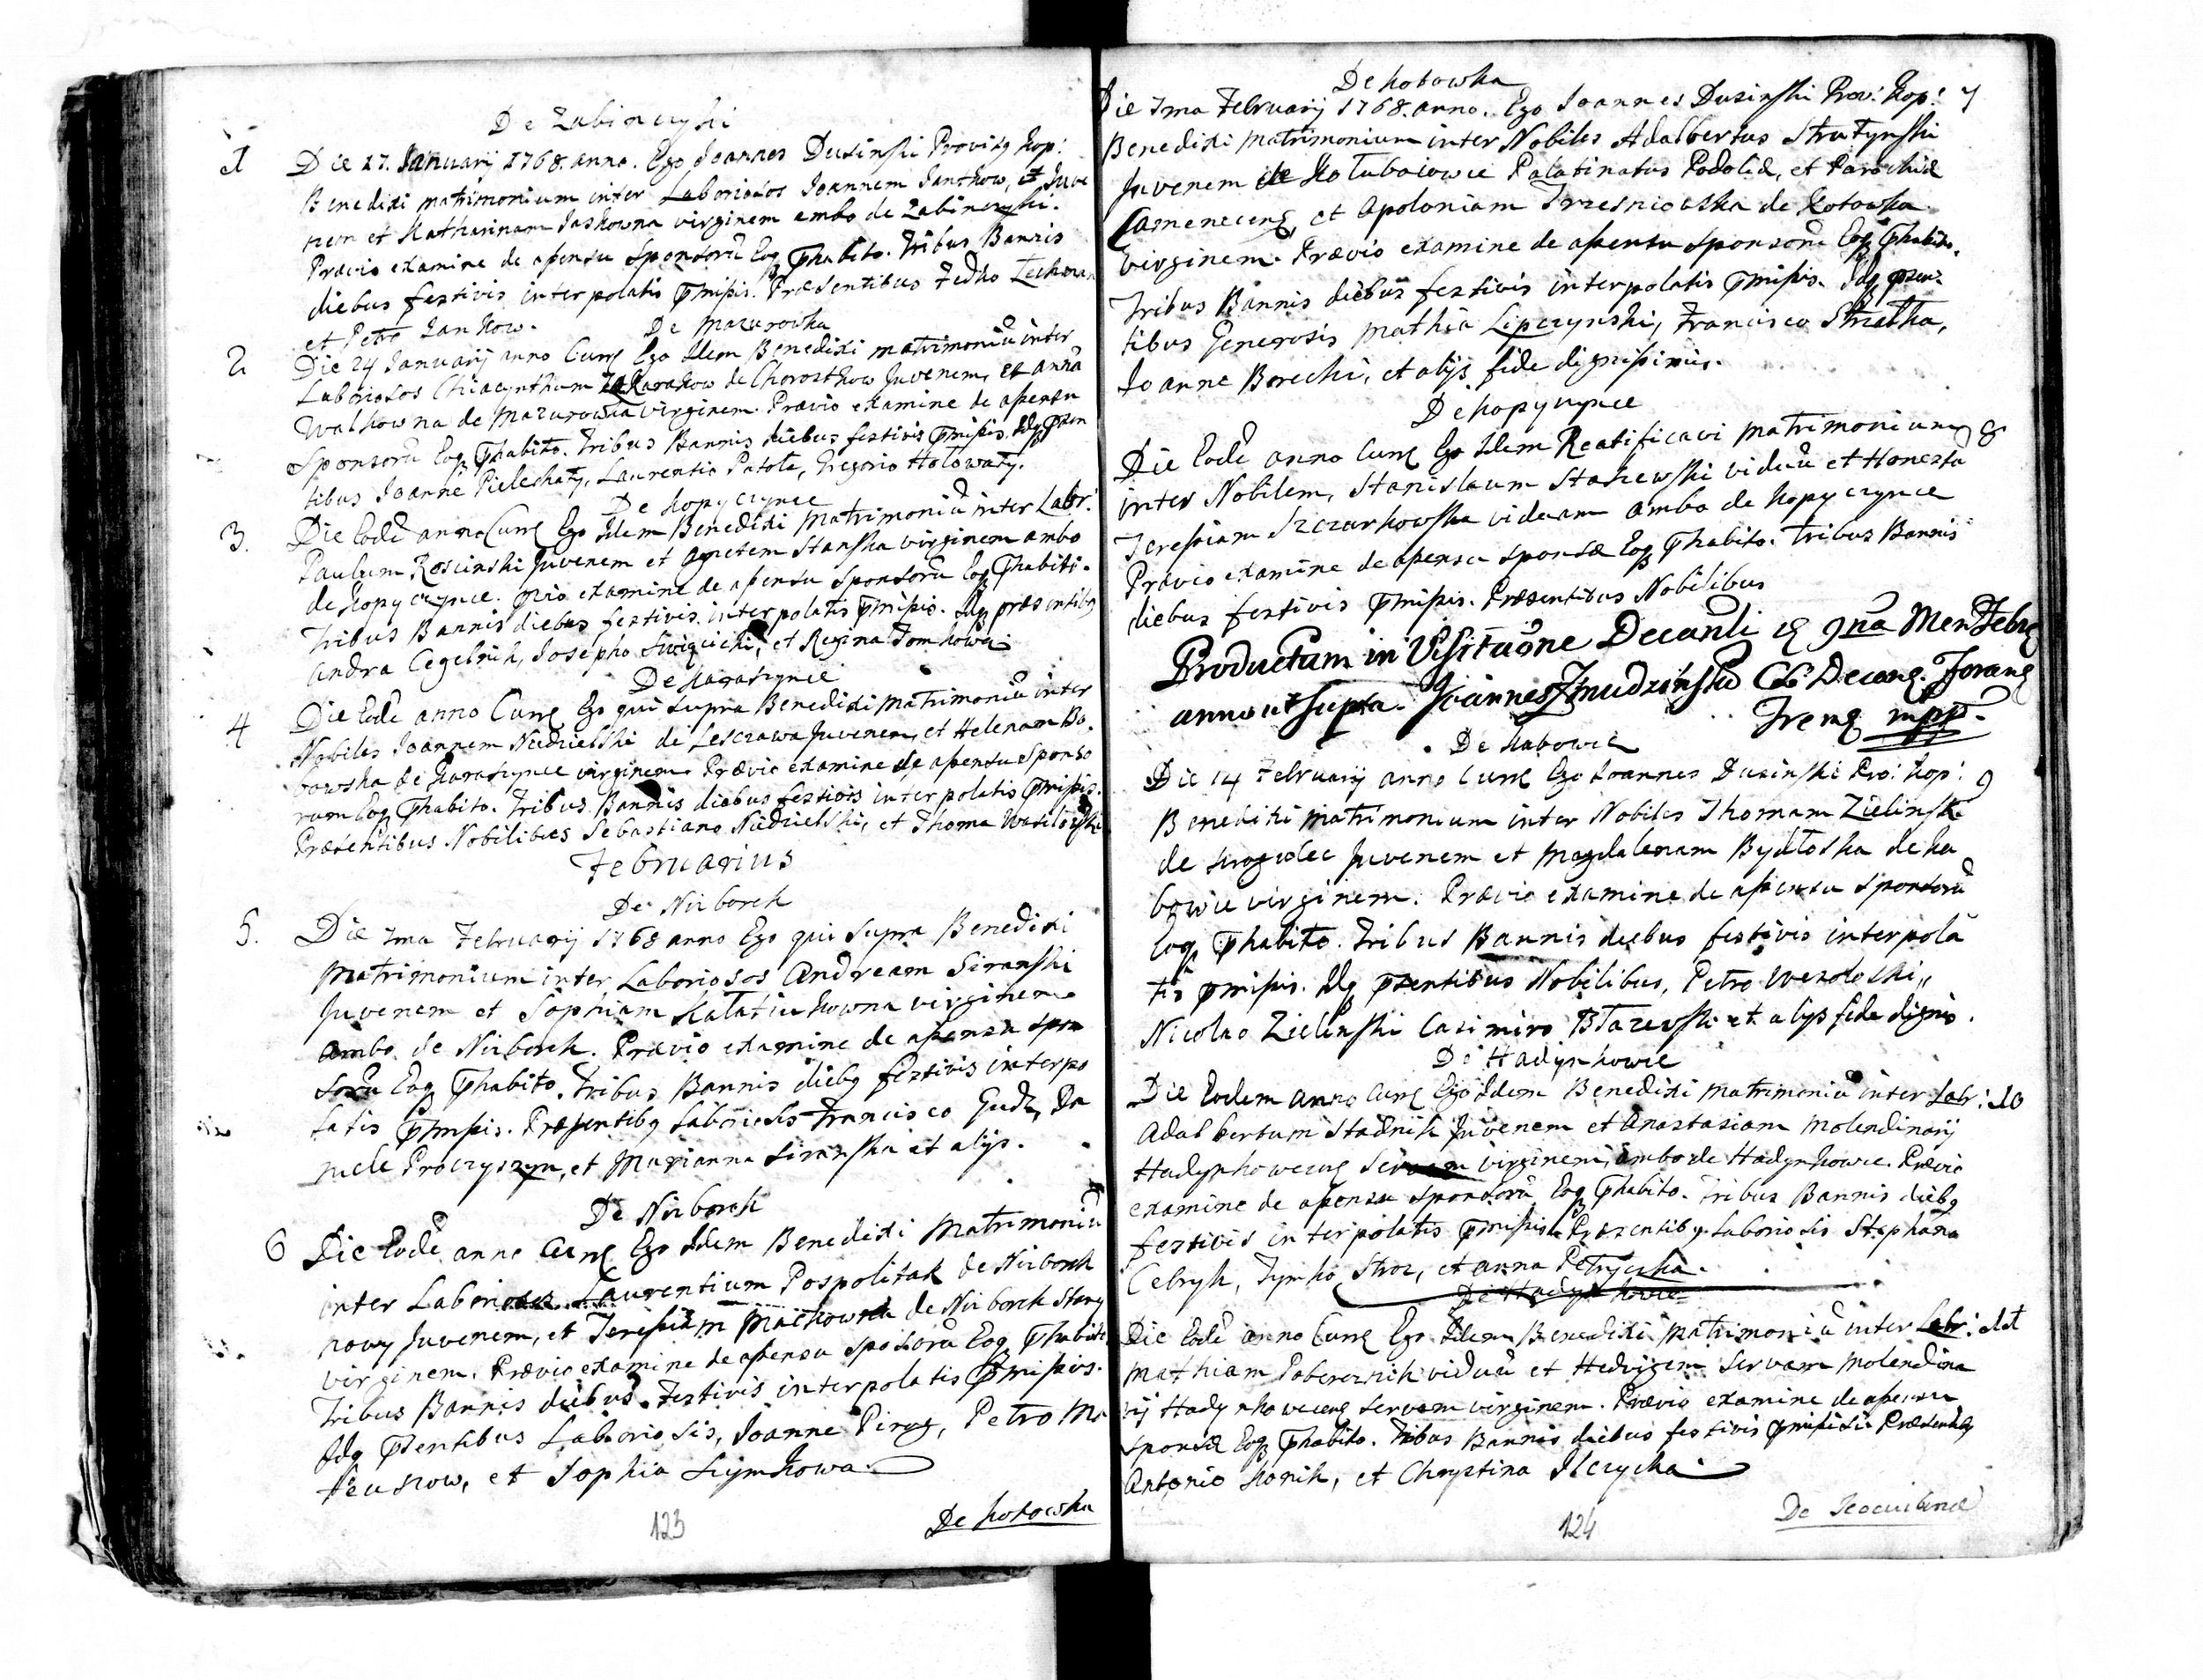 De Zabinczyki
1 Die 17. Januarij 1768. anno. Ego Joannes Dusinski Provisg Kop:
Benedixi matrimonium inter Laboriosos Joannem Jankow, et Juve
nem et Katharinam Jaskowna virginem ambo de Zabinczyki.
Prævio examine de assensu Sponsorū Eoq p̄habito. Tribus Bannis
diebus festivis interpolatis p̄missis. Præsentibus Fedko
et Petro Jankow.
De Mazurowka
2 Die 24 Januarij anno Curr Ego Idem Benedixi matrimoniū inter
Laboriosos Chiacynthum Zakarakow de Chorostkow Juvenem, et anna
Walkowna de Mazurowka virginem. Prævio examine de assensu
Sponsorū Eoq p̄habito. Tribus Bannis diebus festivis p̄missis. Idq p̄sen
tibus Joanne Pieleshaty, Laurentio Patola, Gregorio Holowaty.
De Kopyczynce
3. Die Eodē anno Curr Ego Idem Benedixi Matrimoniū inter Labr:
Paulum Roscinski Juvenem et agnetem Stanska virginem ambo
de Kopyczynce. p̄vio examine de assensu Sponsorū Eoq p̄habito.
Tribus Bannis diebus festivis interpolatis p̄missis. Idq præsentibg
Andra Cegelnik, Josepho, et Regina Tomkowa
De Karaszynce
4 Die Eodē anno Curr Ego qui Supra Benedixi Matrimoniū inter
Nobiles Joannem Niedzielski de Lesczawa Juvenem, et Helenam Bo
bowska de Karaszynce virginem. Prævio examine de assensu Sponso
rum Eoq p̄habito. Tribus Bannis diebus festivis interpolatis p̄missis.
Præsentibus Nobilibus Sebastiano Niedzielski, et Thoma Wasilowski
Februarius
De Nizborek
5. Die 7ma Februarij 1768 anno Ego qui Supra Benedixi
Matrimonium inter Laboriosos Andream Siranski
Juvenem et Sophiam Kalatiukowna virginem
ambo de Nizborek. Prævio examine de assensu spon
sorū Eoq p̄habito. Tribus Bannis diebg festivis interpo
latis p̄missis. Præsentibg Laboriosis Francisco Gudz, Da
niele Proczyszyn, et Marianna Siranska et alijs.
De Nizborek
6 Die Eodē anno Curr Ego Idem Benedixi Matrimoniū
inter Laboriosos Laurentium Pospolitak de Nizborek
nowy Juvenem, et Teressiam Mackowna de Nizborek Stary
virginem. Prævio examine de assensu sposorū Eoq p̄habito
Tribus Bannis diebus Festivis interpolatis p̄missis.
Idq p̄sentibus Laboriosis, Joanne Pirog, Petro Ma
teuszow, et Sophia Szymkowa
123
De Kotowska
De Kotowka
Die 7ma Februarij 1768. anno. Ego Joannes Dusinski Prov: Kop: 7
Benedixi Matrimonium inter Nobiles Adalbertus Strutynski
Juvenem de Kotubaiowie Palatinatus Podoliæ, et Parochiæ
Camenecens, et Apoloniam Trzesniowska de Kotowka
virginem. Prævio examine de assensu Sponsorū Eoq p̄habito.
Tribus Bannis diebus festivis interpolatis p̄missis. Idq p̄sen
tibus Generosis Mathia Lipczynski, Francisco Strietka,
Joanne Borecki, et alijs fide dignissimis.
De Kopyczynce
Die Eodē anno Curr Ego Idem Reatificavi Matrimonium 8
inter Nobilem, Stanislaum Staszewski viduū et Honestā
Teressiam Szczurkowska viduam ambo de Kopyczynce
Prævio examine de assensu sponsæ Eoq p̄habito. Tribus Bannis
diebus festivis p̄missis. Præsentibus Nobilibus
Productum in Visitaōne Decanli 9na Men Febr
anno ut Supra. Joannes Zmudzinski Decang. Forang
Tremb mpp.
De Kabowie
Die 14 Februarij anno Curr Ego Joannes Dusinski Pro: Kop: 9
Benedixi Matrimonium inter Nobiles Thomam Zielinski
de Juvenem et Magdalenam Bydłoska de Ka
bowie virginem. Prævio examine de assensu sponsorū
Eoq p̄habito. Tribus Bannis diebus festivis interpola
tis p̄missis. Idq p̄sentibus Nobilibus, Petro Wesoloski,,
Nicolao Zielinski Casimiro Błazewski et alijs fide dignis.
De Hadynkowie
Die Eodem anno Curr Ego Idem Benedixi Matrimoniū inter Labr: 10
Adalbertum Stadnik Juvenem et Anastasiam Molendinarij
Hadynkowecens Servam virginem, ambo de Hadynkowie. Prævio
examine de assensu Sponsorū Eoq p̄habito. Tribus Bannis diebg
festivis interpolatis p̄missis. Præsentibg Laboriosis Stephano
Cebryk, Tymko Stroz, et Anna Petryczka.
De Hadynkowie
Die Eodē anno Curr Ego Idem Benedixi Matrimoniū inter Labr: 11
Mathiam Pobereznik viduū et Hedvigem Servam Molendina
rij Hadynkowecens Servam virginem. Prævio examine de assensu
Sponsæ Eoq p̄habito. Tribus Bannis diebus festivis p̄missis Præsentibg
Antonio Konik, et Chrystina Ilczycka.
124
De